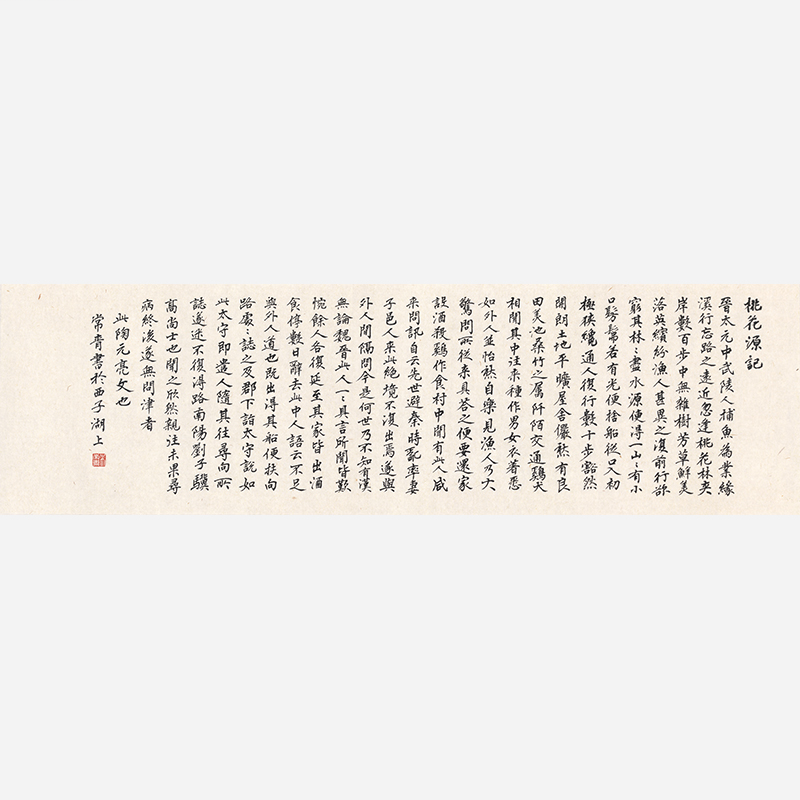 桃花源記
晉太元中武陵人捕魚為業緣
溪行忘路之遠近忽逢桃花林夾
岸數百步中無雜樹芳草鮮美
落英繽紛漁人甚異之復前行欲
窮其林〻盡水源便得一山〻有小
口髣髴若有光便捨船從口入初
極狹纔通人復行數十步豁然
開朗土地平曠屋舍儼然有良
田美池桑竹之屬阡陌交通鷄犬
相聞其中往来種作男女衣著悉
如外人並怡然自樂見漁人乃大
驚問所從来具答之便要還家
設酒殺鷄作食村中聞有此人咸
来問訊自云先世避秦時亂率妻
子邑人来此絕境不復出焉遂與
外人間隔問今是何世乃不知有漢
無論魏晉此人一〻具言所聞皆歎
惋餘人各復延至其家皆出酒
食停數日辭去此中人語云不足
與外人道也既出得其船便扶向
路處〻誌之及郡下詣太守說如
此太守即遣人隨其往尋向所
誌遂迷不復得路南陽劉子驥
高尚士也聞之欣然親往未果尋
病終後遂無問津者
此陶元亮文也
常青書於西子湖上